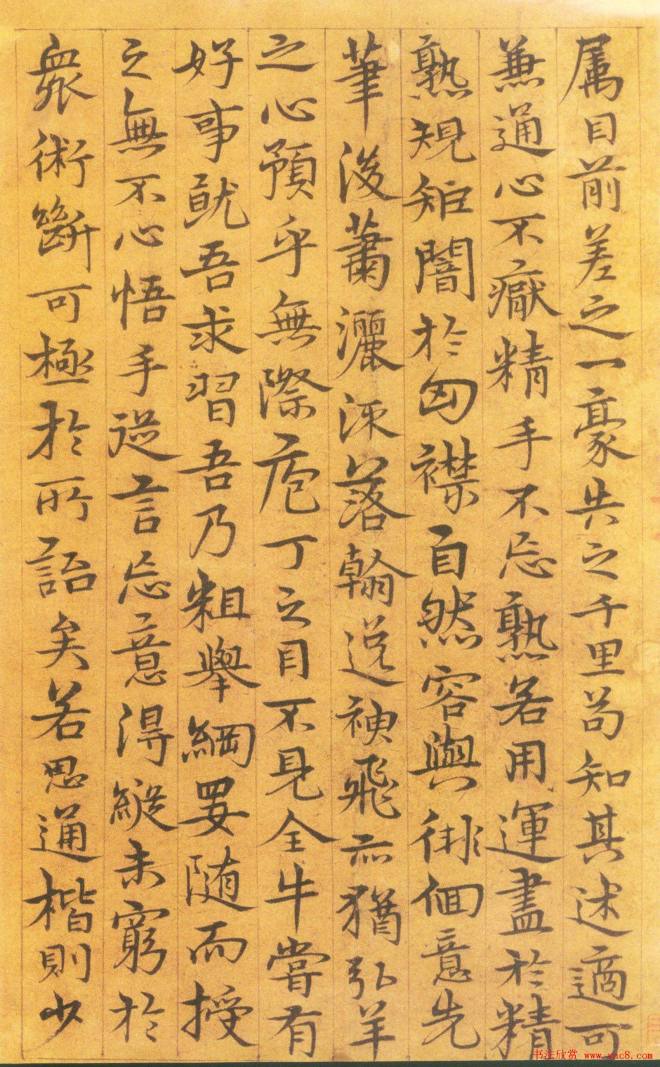 属目前差之一豪失之千里苟知其述適可
兼通心不厭精手不忘熟若用運盡於精
熟規矩闇於匈襟自然容與徘徊意先
筆後蕭灑流落翰逸神飛亦猶弘羊
之心預乎無際庖丁之目不見全牛嘗有
好事就吾求習吾乃粗舉綱要随而授
之無不心悟手從言忘意得縱未窮於
衆術斷可極於所詣矣若思通楷則少
书法欣赏 www.yac8.com